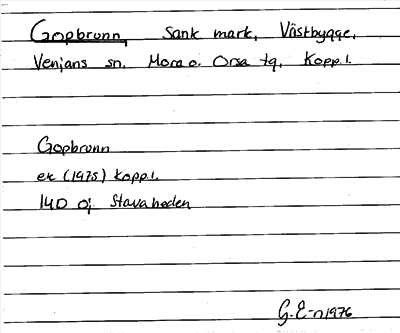 Gopbrunn, Sank mark, Västbygge,
Venjans sn. Mora o. Orsa tg. Kopp. l.
Gopbrunn
ek (1975) Kopp. l.
14D 0j Stavaheden
G. E-n 1976